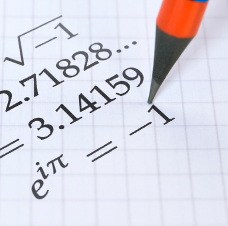 √-1
2.71828...
= 3.14159
e^{iπ} = -1